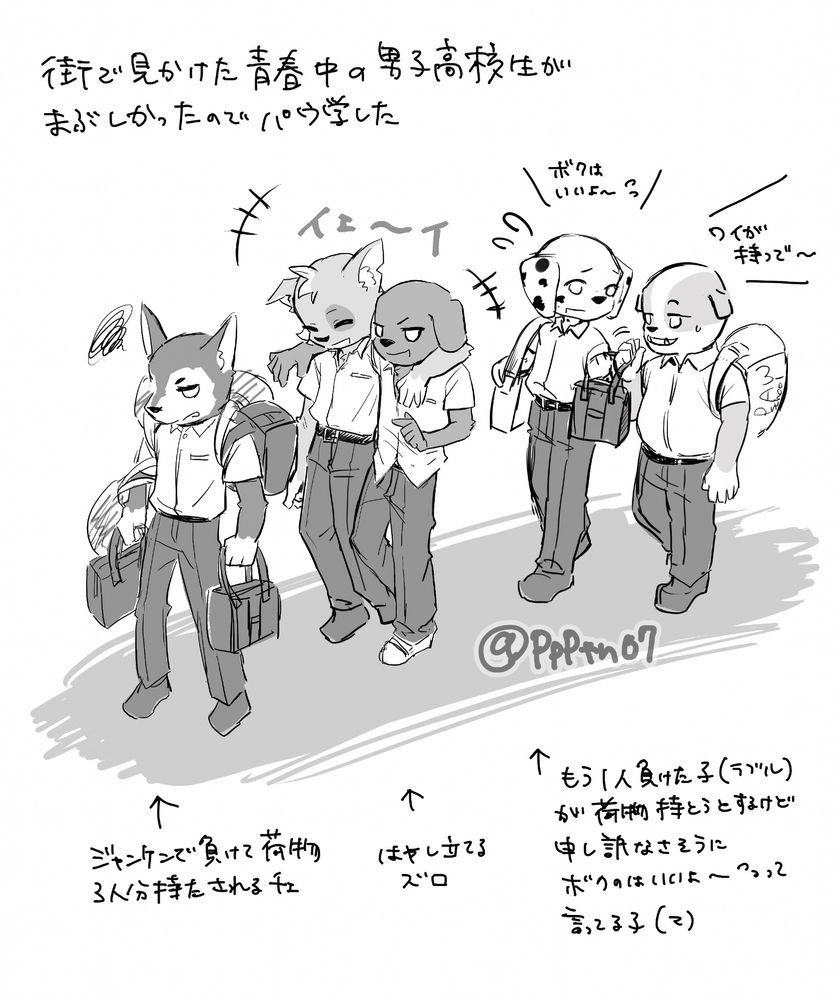 街で見かけた青春中の男子高校生が
まぶしかったのでパウ学した
イェ〜イ
ボクは
いいよ〜
ワイが
持つで〜
PAW
School
@PPPtn07
↑
ジャンケンで負けて荷物
3人分持たされるチェ
↑
はやし立てる
ズロ
↑
もう1人負けた子(ラブル)
が荷物持とうとするけど
申し訳なさそうに
ボクのはいいよ〜って
言ってる子(て)